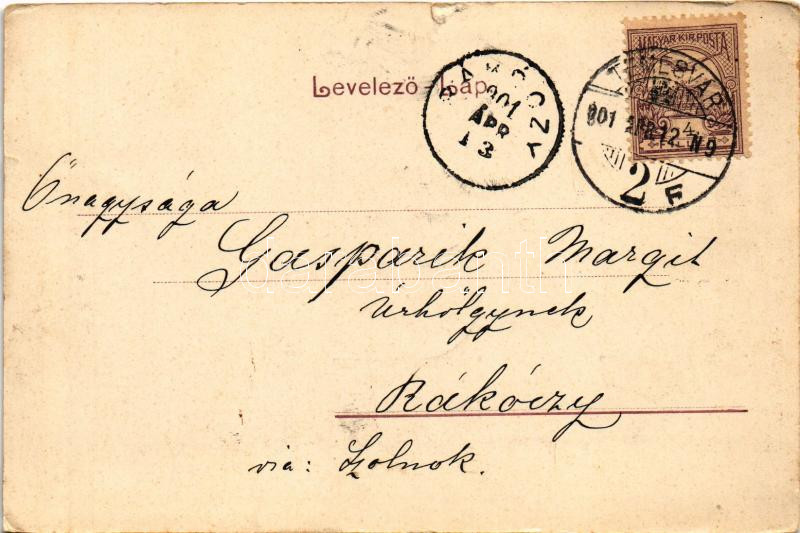 MAGYAR KIR. POSTA
TEMESVÁR
901 ÁPR. 12 N9
2 F
RÁKÓCZY
901
ÁPR
13
Levelező Lap
Őnagysága
Gasparik Margit
Úrhölgynek
Rákóczy
via: Szolnok.